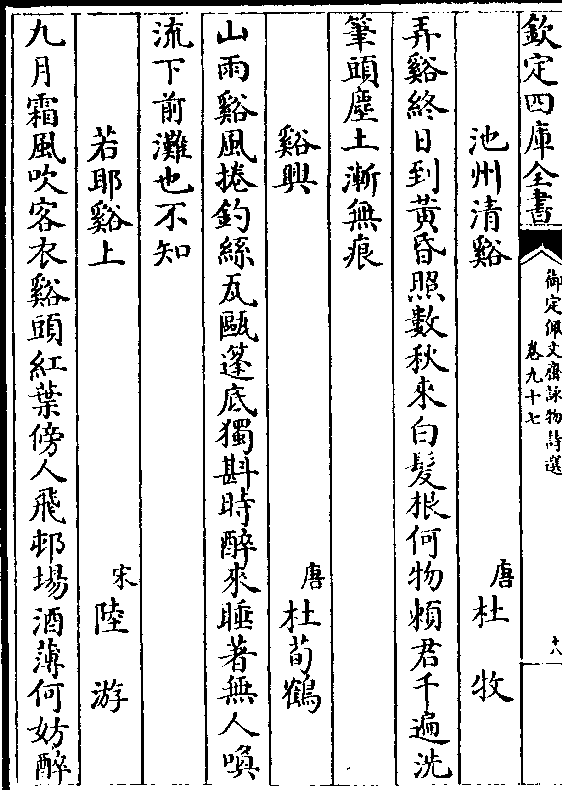 欽定四庫全書
御定佩文齋詠物詩選
卷九十七
十八
池州清谿　唐杜牧
弄谿終日到黃昏照數秋來白髮根何物頼君千遍洗
筆頭塵土漸無痕
谿興　唐杜荀鶴
山雨谿風捲釣絲瓦甌蓬底獨斟時醉來睡著無人喚
流下前灘也不知
若耶谿上　宋陸游
九月霜風吹客衣谿頭紅葉傍人飛邨場酒薄何妨醉